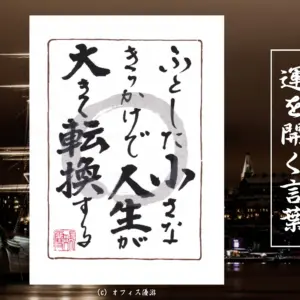 ふとした小さな
きっかけで人生が
大きく転換する
運を開く言葉
(c) オフィス蓮沼